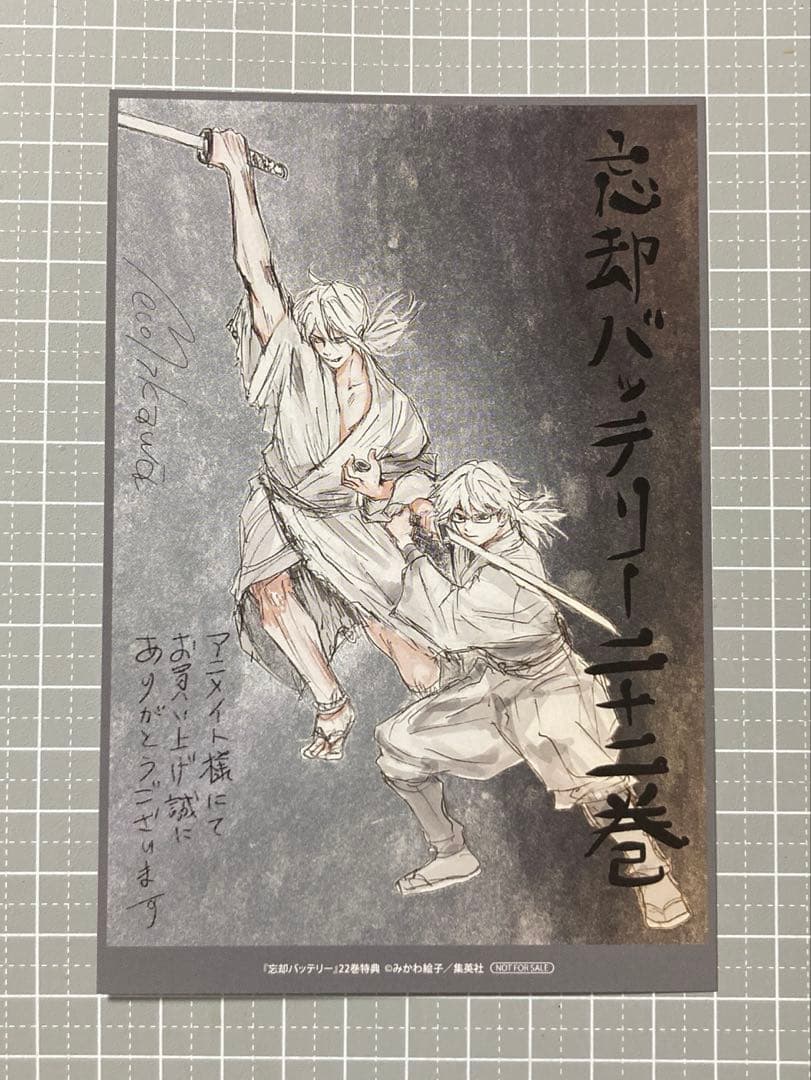 忘却バッテリー二十二巻
Eco Mikawa
アニメイト様にて
お買い上げ誠に
ありがとうございます
『忘却バッテリー』22巻特典 ©みかわ絵子／集英社 NOT FOR SALE